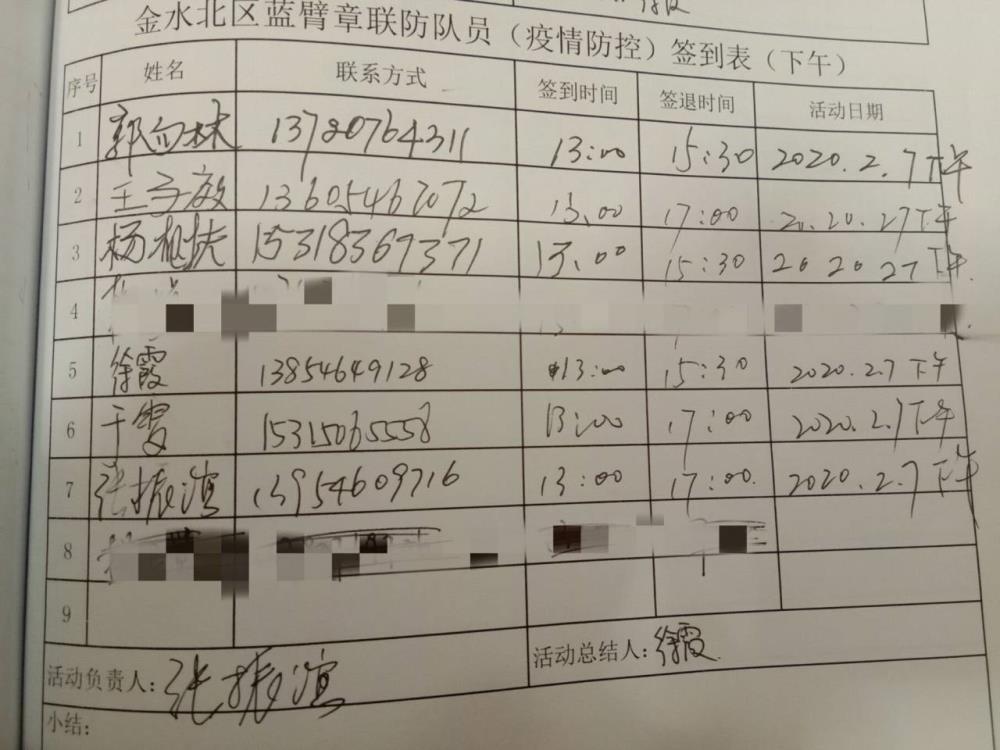 金水北区蓝臂章联防队员（疫情防控）签到表（下午）
序号 姓名 联系方式 签到时间 签退时间 活动日期
1 郭向林 13780764311 13:00 15:30 2020.2.7下午
2 王子敏 13605467072 13.00 17:00 20.20.27下午
3 杨 15318367371 13.00 15:30 20 20 27 下午
4
5 徐霞 13854649128 13:00 15:30 2020.2.7 下午
6 于雯 15315065558 13:00 17:00 2020.2.7下午
7 张振滨 13954609716 13:00 17:00. 2020.2.7下午
8
9
活动负责人: 张振滨 活动总结人: 徐霞
小结: